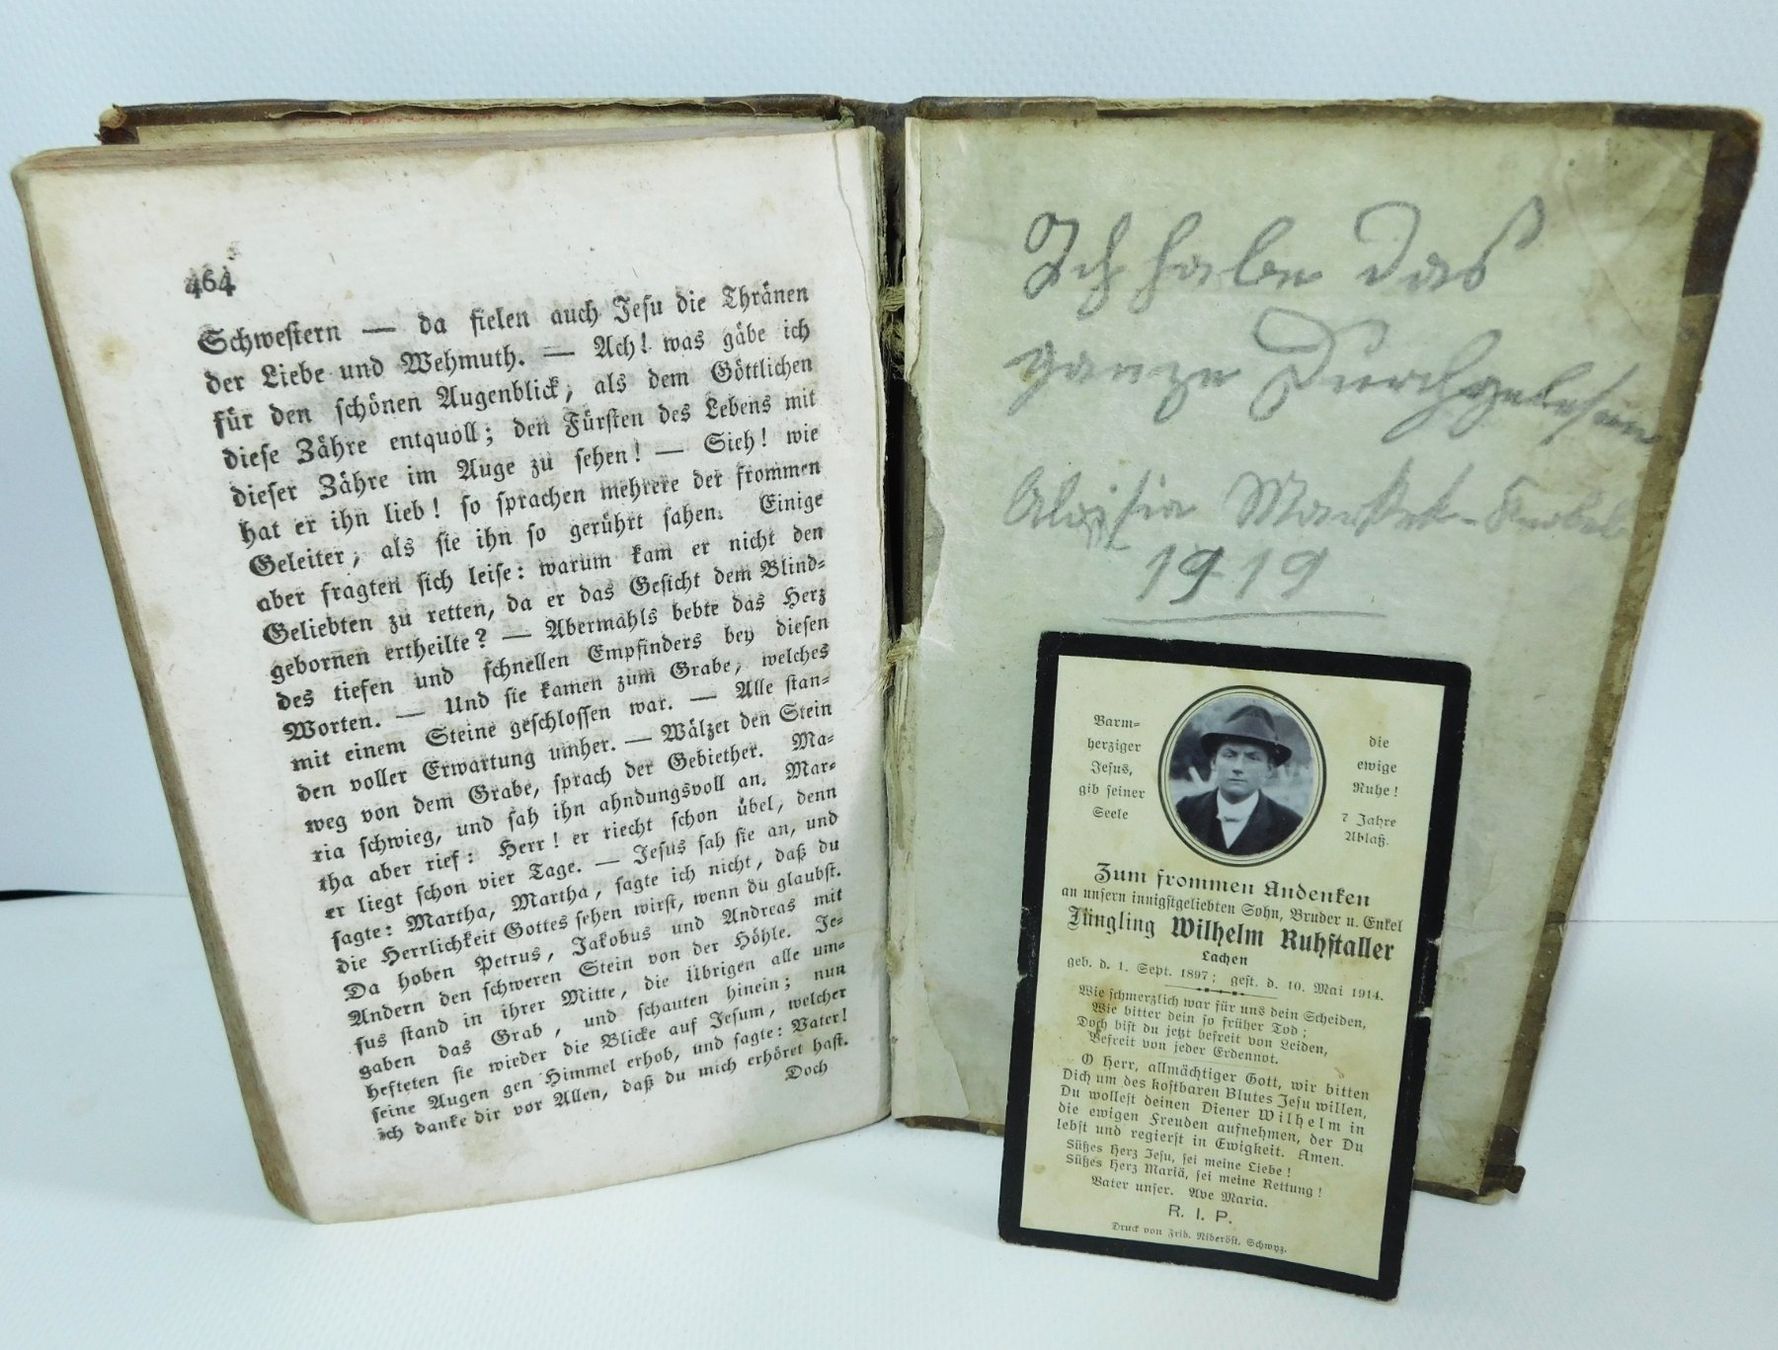 464
Schwestern — da fielen auch Jesu die Thränen
der Liebe und Wehmuth. — Ach! was gäbe ich
für den schönen Augenblick, als dem Göttlichen
diese Zähre entquoll; den Fürsten des Lebens mit
dieser Zähre im Auge zu sehen! — Sieh! wie
hat er ihn lieb! so sprachen mehrere der frommen
Geleiter, als sie ihn so gerührt sahen. Einige
aber fragten sich leise: warum kam er nicht den
Geliebten zu retten, da er das Gesicht dem Blind-
gebornen ertheilte? — Abermahls bebte das Herz
des tiefen und schnellen Empfinders bey diesen
Worten. — Und sie kamen zum Grabe, welches
mit einem Steine geschlossen war. — Alle stan-
den voller Erwartung umher. — Wälzet den Stein
weg von dem Grabe, sprach der Gebiether. Ma-
ria schwieg, und sah ihn ahndungsvoll an. Mar-
tha aber rief: Herr! er riecht schon übel, denn
er liegt schon vier Tage. — Jesus sah sie an, und
sagte: Martha, Martha, sagte ich nicht, daß du
die Herrlichkeit Gottes sehen wirst, wenn du glaubst.
Da hoben Petrus, Jakobus und Andreas mit
Andern den schweren Stein von der Höhle. Je-
sus stand in ihrer Mitte, die Übrigen alle um-
gaben das Grab, und schauten hinein; nun
hefteten sie wieder die Blicke auf Jesum, welcher
seine Augen gen Himmel erhob, und sagte: Vater!
ich danke dir vor Allen, daß du mich erhöret hast.
Doch
Ich habe das
ganze Durchgelesen
Aloisia
1919
Barm-
herziger
Jesus,
gib seiner
Seele
die
ewige
Ruhe!
7 Jahre
Ablaß.
Zum frommen Andenken
an unsern innigstgeliebten Sohn, Bruder u. Enkel
Jüngling Wilhelm Ruhstaller
Lachen
geb. d. 1. Sept. 1897; gest. d. 10. Mai 1914.
Wie schmerzlich war für uns dein Scheiden,
Wie bitter dein so früher Tod;
Doch bist du jetzt befreit von Leiden,
Befreit von jeder Erdennot.
O Herr, allmächtiger Gott, wir bitten
Dich um des kostbaren Blutes Jesu willen,
Du wollest deinen Diener Wilhelm in
die ewigen Freuden aufnehmen, der Du
lebst und regierst in Ewigkeit. Amen.
Süßes Herz Jesu, sei meine Liebe!
Süßes Herz Mariä, sei meine Rettung!
Vater unser. Ave Maria.
R. I. P.
Druck von Frid. Nideröst, Schwyz.